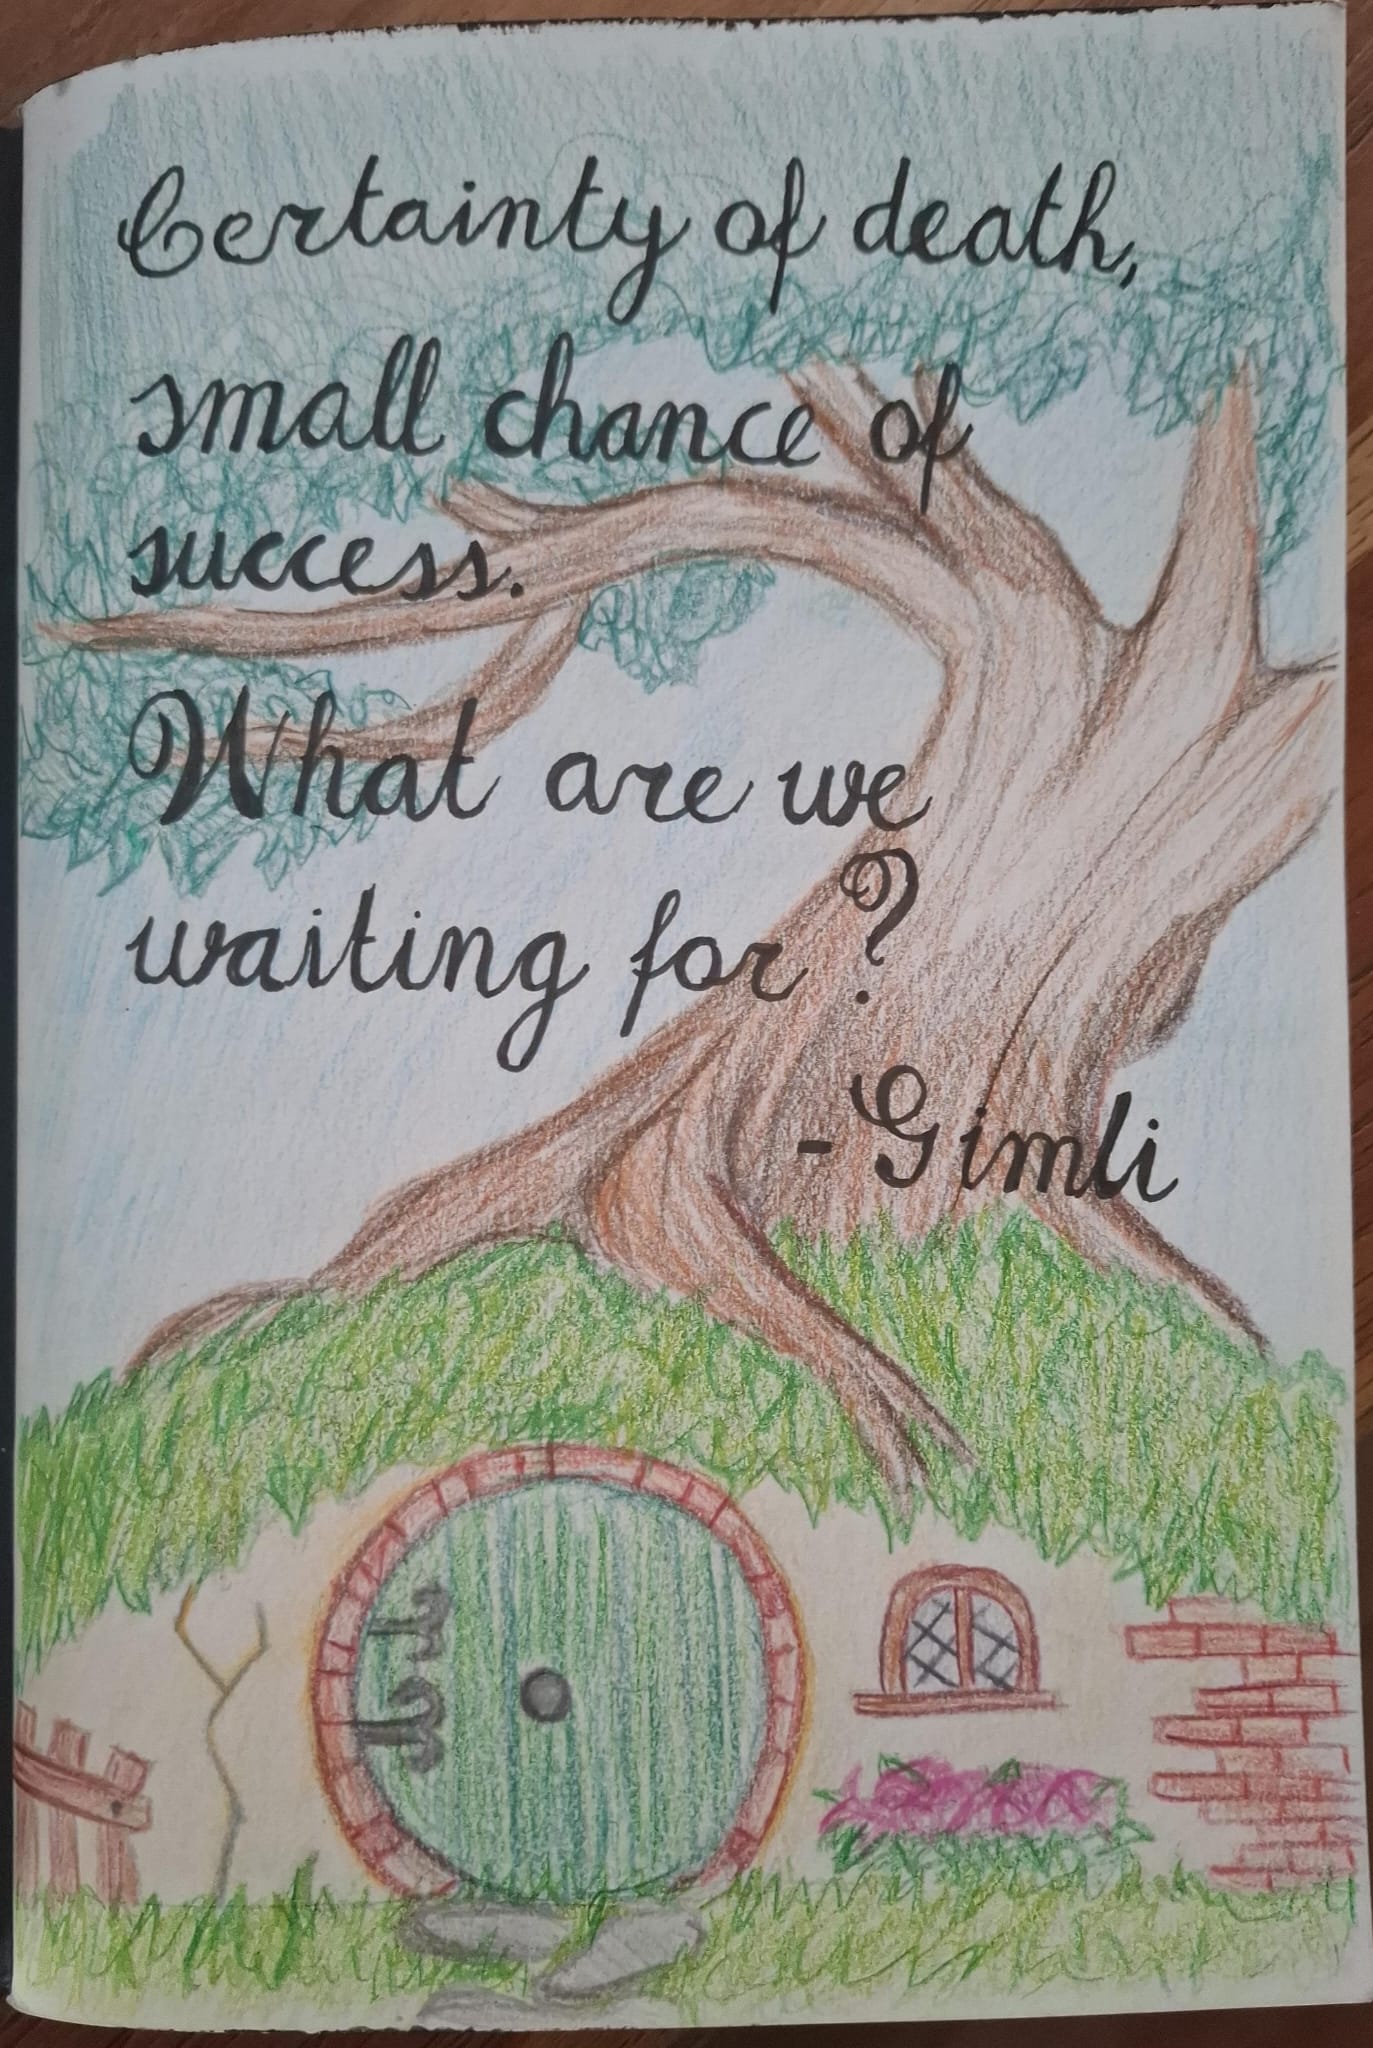 Certainty of death,
small chance of
success.
What are we
waiting for?
- Gimli